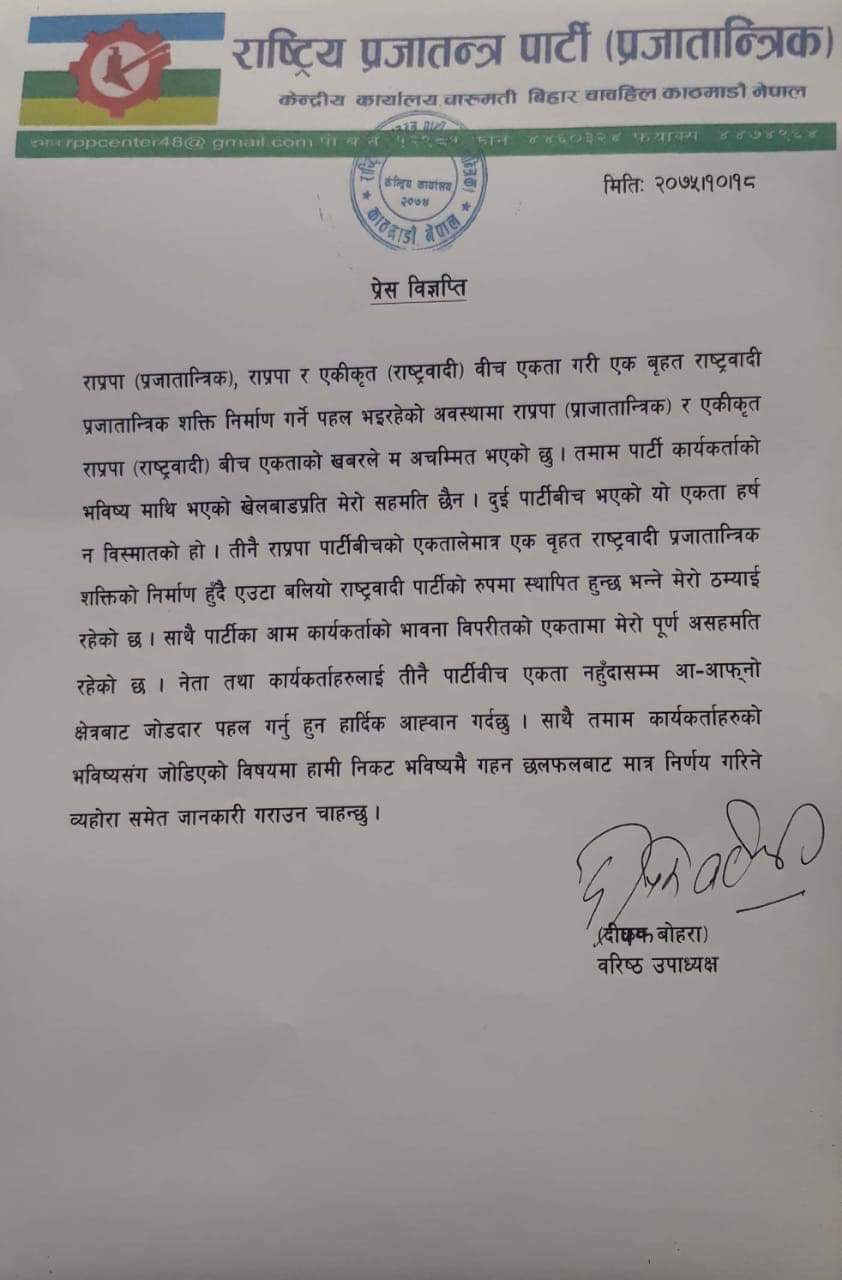 राष्ट्रिय प्रजातन्त्र पार्टी (प्रजातान्त्रिक)
केन्द्रीय कार्यालय चारुमती बिहार चावहिल काठमाडौ नेपाल
इमेल rppcenter48@gmail.com पो ब न फोन ४४६०३२४ फ्याक्स ४४७४९६४
केन्द्रिय कार्यालय
२०७४
काठमाडौं नेपाल
मितिः २०७५।१०।१८
प्रेस विज्ञप्ति
राप्रपा (प्रजातान्त्रिक), राप्रपा र एकीकृत (राष्ट्रवादी) वीच एकता गरी एक बृहत राष्ट्रवादी
प्रजातान्त्रिक शक्ति निर्माण गर्ने पहल भइरहेको अवस्थामा राप्रपा (प्राजातान्त्रिक) र एकीकृत
राप्रपा (राष्ट्रवादी) बीच एकताको खबरले म अचम्मित भएको छु । तमाम पार्टी कार्यकर्ताको
भविष्य माथि भएको खेलबाडप्रति मेरो सहमति छैन । दुई पार्टीबीच भएको यो एकता हर्ष
न विस्मातको हो । तीनै राप्रपा पार्टीबीचको एकतालेमात्र एक बृहत राष्ट्रवादी प्रजातान्त्रिक
शक्तिको निर्माण हुँदै एउटा बलियो राष्ट्रवादी पार्टीको रुपमा स्थापित हुन्छ भन्ने मेरो ठम्याई
रहेको छ । साथै पार्टीका आम कार्यकर्ताको भावना विपरीतको एकतामा मेरो पूर्ण असहमति
रहेको छ । नेता तथा कार्यकर्ताहरुलाई तीनै पार्टीवीच एकता नहुँदासम्म आ-आफ्‌नो
क्षेत्रबाट जोडदार पहल गर्नु हुन हार्दिक आह्वान गर्दछु । साथै तमाम कार्यकर्ताहरुको
भविष्यसंग जोडिएको विषयमा हामी निकट भविष्यमै गहन छलफलबाट मात्र निर्णय गरिने
व्यहोरा समेत जानकारी गराउन चाहन्छु ।
(दीपक बोहरा)
वरिष्ठ उपाध्यक्ष